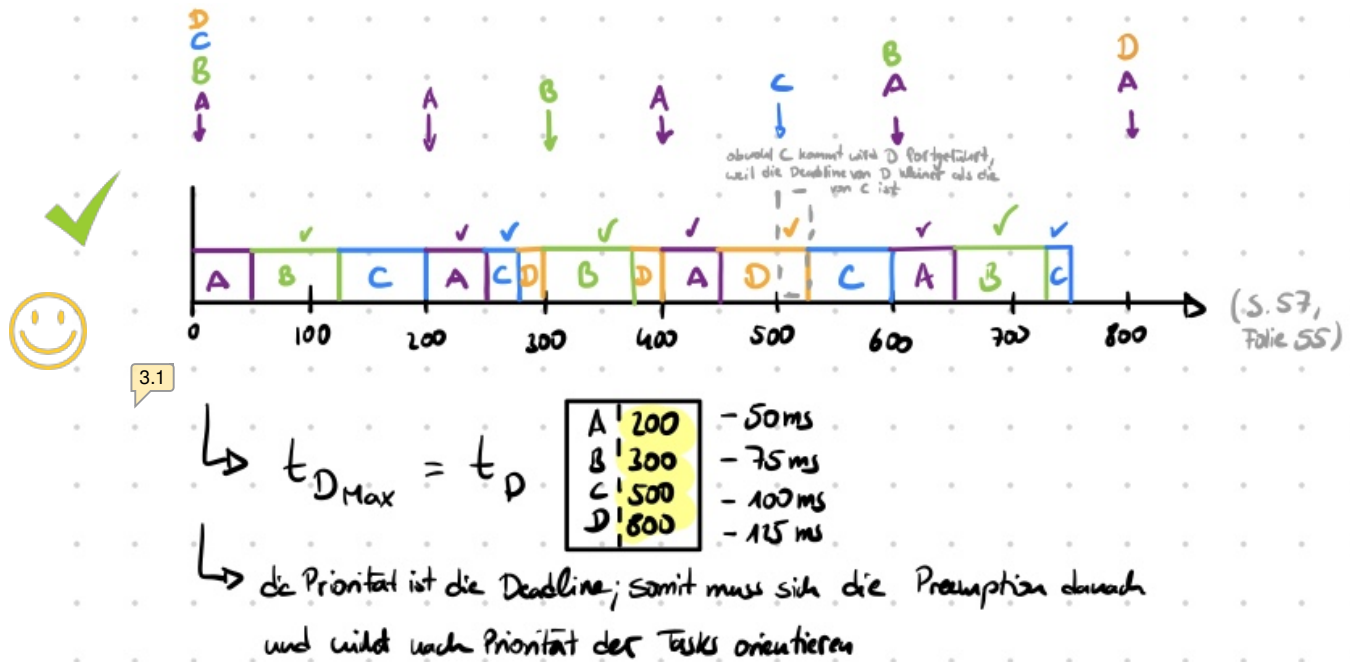 D
C
B
A
A
B
A
C
B
A
D
A
obwohl C kommt wird D fortgeführt,
weil die Deadline von D kleiner als die
von C ist
A B C A C D B D A D C A B C
0 100 200 300 400 500 600 700 800
(S. 57,
Folie 55)
3.1
t_D_Max = t_D
A 200 - 50ms
B 300 - 75ms
C 500 - 100ms
D 800 - 125 ms
die Priorität ist die Deadline; somit muss sich die Preemption danach
und nicht nach Priorität der Tasks orientieren